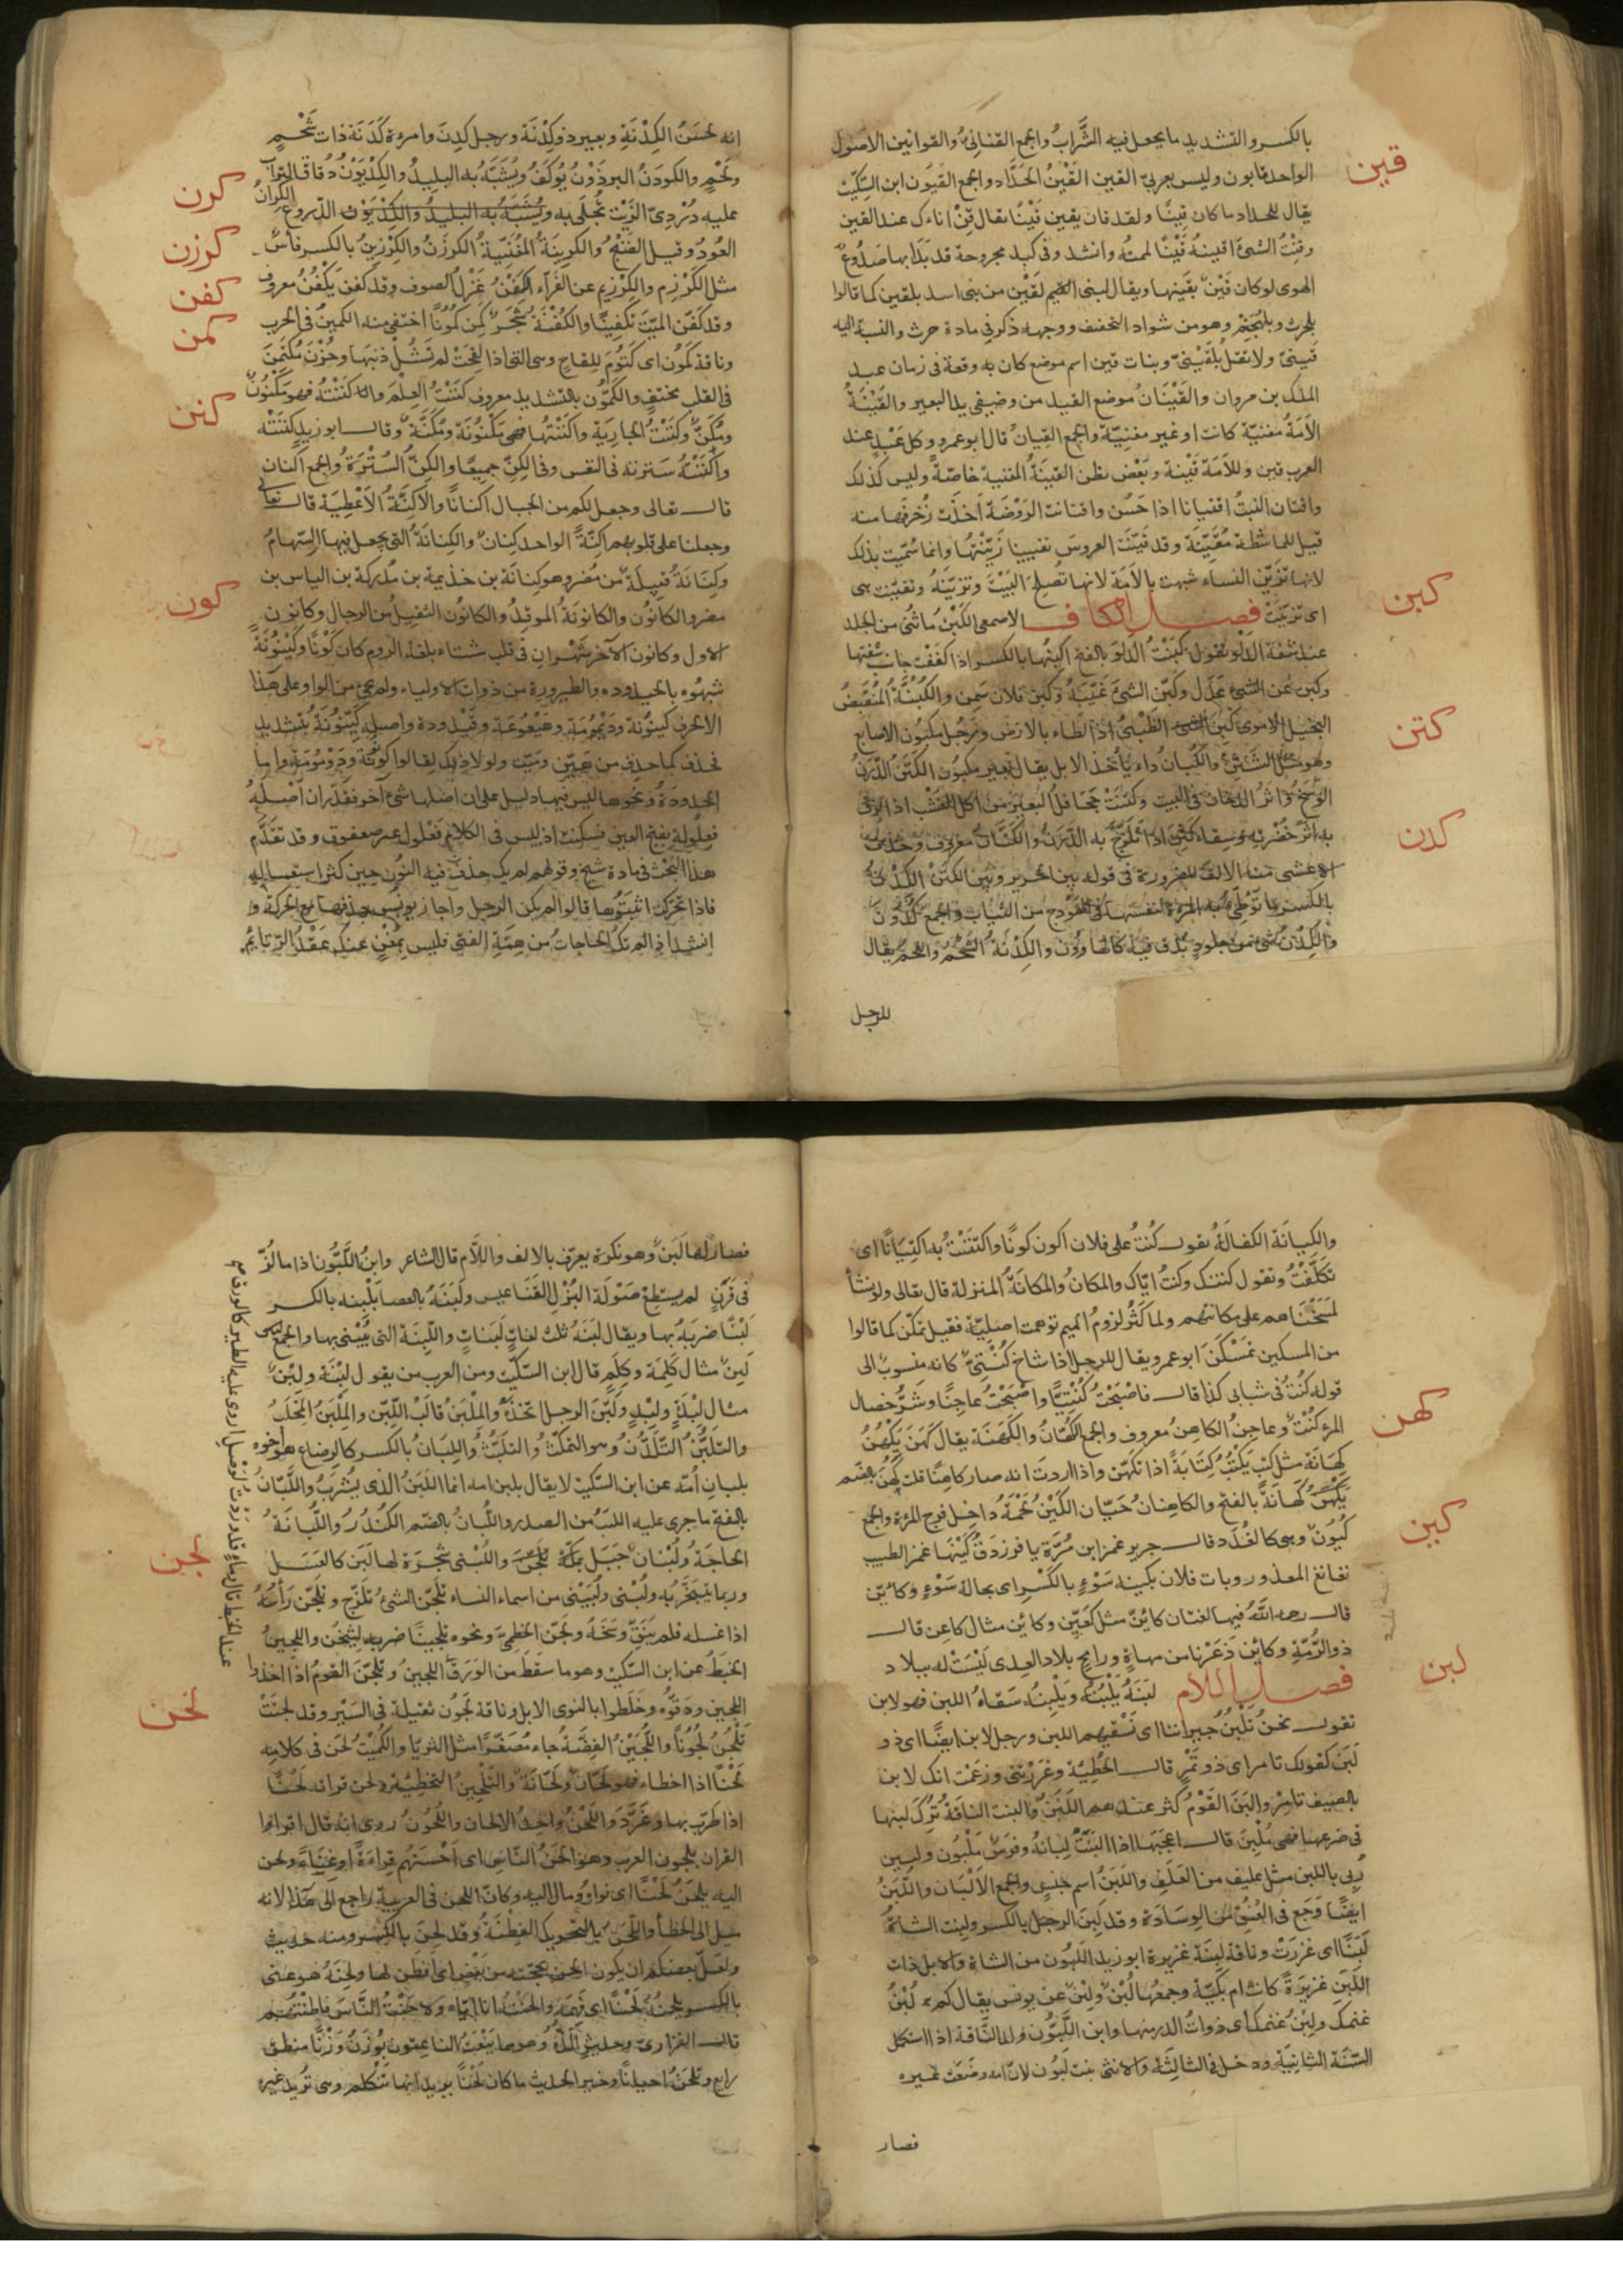 بالكسر والتشديد ما يجعل فيه الشَّرابُ والجمع القنانىُّ والقوانين الاصول
قين
الواحد قانون وليس بعربىّ القين القَيْنُ الحَدَّاد والجمع القيُون ابن السكّيت
يقال للحداد ما كان قينًا ولقد قان يقين قَيْنًا يقال قِنْ اناءك عند القين
وقِنْتُ الشئَ اقينهُ قَيْنًا لممتهُ وانشد وفى كبد مجروحة قد بَدَا بها صَدُوعُ
الهوى لو كان قَيْنٌ يقينها ويقال لبنى القين من بنى اسد بلقين كما قالوا
بلحرث وبلهجيم وهو من شواد التخفيف ووجهه ذكر فى مادة حرث والنسبة اليه
قَينىّ ولا تقل بُلْقَيْنىّ وبنات قين اسم موضع كان به وقعة فى زمان عبد
الملك بن مروان والقَيْنَان موضع القيد من وضيفى يد البعير والقَيْنَةُ
الأَمَةُ مغنيّة كانت او غير مغنيّة والجمع القِيانُ قال ابو عمرو وكل عَبْدٍ عند
العرب قين وللأمَة قَيْنة وبَعْض يظن القينَةُ المغنية خاصّةً وليس كذلك
واقتان النبتُ اقتيانا اذا حَسُن واقتانت الرَوْضَة أخذَت زُخرفَها منه
قيل للماشطة مُقَيِّنَة وقد قَيّنَت العروسَ تقيينا زَيّنْتها وانما سُمّيت بذلك
لانها تزيّن النساء شبهت بالأمَة لانها تُصلح البَيْتَ وتزيّنَهُ وتقيّنت هى
كبن
اى تزيّنَتْ فصل الكاف الاصمعى الكَبْنُ ما ثُنى من الجلد
عند شفة الدَلْو تقول كَبَنْتُ الدَلْوَ بالفتح اكبنُها بالكسر اذا كففْت جانب شفتها
وكبن عن الشئ عَدَل وكَبن الشئَ غَيّبَهُ وكبن فلان سَمِن والكُبُنَّةُ المُنقَبِضُ
كتن
البخيل الاموى كَبن الظَبْىُ اذا لطأ بالارض ورَجُل مكبُون الاصابع
وهو مثل الشَثْن والكُبان داء يأخذ الابل يقال بعير مكبُون الكَتَنُ الدَرَنُ
الوَسَخُ واثر الدخان فى البيت وكتنَتْ جحافل البعير من اكل العشب اذا لزق
كدن
به اثر خُضْرَته وسقاء كَتِن اذا تلزّج به الدَرَنُ والكَتَّانُ معروف وحذف
الاعشى منه الالف للضرورة فى قوله بين الحرير وبين الكتَنْ الكِدْنُ
بالكسر ما تُوَطّئُ به المرءة لنفسها فى الهودج من الثياب والجمع كُدُون
والكِدْنُ شئ من جلود يدق فيه كالهاوُن والكِدْنَةُ الشَحْمُ واللحْمُ يقال
للرجل
انه لحسَنُ الكِدْنَةِ وبعير ذو كِدْنَة ورجل كدِن وامرءة كَدَنَة ذات شَحْمٍ
كرن
ولَحْمٍ والكودَنُ البرذَوْنُ يُوكَفُ ويُشَبَّهُ به البليدُ والكِدْيَوْنُ دُقاق التراب
عليه دُرْدىّ الزيت تُجْلَى به الدروع الكِرانُ
كرزن
العُودُ وقيل الصَنْجُ والكرينَةُ المُغَنيّةُ الكرزَنُ والكِرْزِينُ بالكسر فأسٌ
كفن
مثل الكَرْزَم والكِرْزِيم عن الفرّاء الكَفْنُ غَزْلُ الصوف وقد كَفَن يَكْفُنُ معروف
كمن
وقد كَفَّن الميّتَ تكفينًا والكَفْنَةُ شَجَرٌ كمن كُمُونًا اختفى منه الكمينُ فى الحرب
وناقة كمُون اى كتُوم للِقاح وهى التى اذا لقِحَتْ لم تَشُلْ ذنبَها وحُزْنٌ مُكتَمِن
كنن
فى القلب مختفٍ والكَمّون بالتشديد معروف كَنَنْتُ العِلْمَ واكْنَنْتُهُ فهو مَكْنُونٌ
ومُكَنٌّ وكنَنْتُ الجارِيَةَ واكنَنْتُها فهى مَكْنُونَة ومُكَنَّة وقال ابو زيد كنَنْتُه
واكنَنْتُهُ سَتَرته فى النفس وفى الكِنّ جميعًا والكِنُّ السُتْرَةُ والجمع اكنان
قال تعالى وجعل لكم من الجبال اكنانًا والأكِنَّةُ الأغْطِيَة قال تعالى
وجعلنا على قلوبهم اكِنَّةً الواحد كِنانٌ والكِنانَةُ التى يجعل فيها السّهامُ
كون
وكِنانةُ قبيلةٌ من مُضر وهو كنانَة بن خذيمة بن مُدركة بن الياس بن
مضر والكانُون والكانُونَةُ الموقِدُ والكانُون الثقيلُ من الرجال وكانون
الاول وكانون الآخر شهران فى قلب شتاء بلغة الروم كان كَوْنًا وكَيْنُونَةً
شبهُوه بالحيدُودة والطيرورة من ذوات الياء ولم يجئ من الواو على هذا
الاحرف كينُونة ودَيْمُومَة وهَيْعُوعَة وقَيْدودة واصله كَيّنُونَةٌ بتشديد
فحذف كما حذف من هيّن وميّت ولولا ذلك لقالوا كونُونَة ودَوْمُومَة واما
الحيدودة ونحوها ليس فيها دليل على ان اصلها شئ آخر فقدّر ان اصلهُ
فعلُولة بفتح العين فسكنت اذ ليس فى الكلام فَعْلول غير صعفوق وقد تقدّم
هذا البحث فى مادة شيخ وقولهم لم يك حذف فيه النُون حين كثر استعماله
فاذا تحرّك اثبَتُوها قالوا لم يكن الرجل واجاز يونُس حذفها مع الحركة و
انشد اذا لم تكُ الحاجات من هِمّةِ الفتى فليس بمُغنٍ عنك عَقْدُ الرّتايم
والكيانَة الكفالَةُ تقول كُنتُ على فلان اكون كونًا واكتَنتُ به اكتِيَانًا اى
تكفّلْتُ وتقول كنتك وكنتُ ايّاك والمكان والمكانَةُ المنزلة قال تعالى ولو نشأ
لمسَخْنَاهم على مكانتهم ولما كَثُر لزومُ الميم توهمت اصليّة فقيل تمكّن كما قالوا
من المسكين تمَسْكَنَ ابو عمرو يقال للرجل اذا شاخ كُنْتِىٌّ كانه منسوبٌ الى
قوله كنتُ فى شبابى كذا قال فاصْبَحْتُ كُنْتِيًّا واصْبَحْتُ عاجِنًا وشرُّ خصال
كهن
المرء كُنْتٌ وعاجِنُ الكاهِنُ معروف والجمع الكُهّانُ والكَهَنَة يقال كَهَنَ يَكْهُنُ
كِهانَة مثل كتب يَكتُبُ كِتابةً اذا تكهّن واذا اردت انه صار كاهنًا قلت كهُنَ بالضم
كين
يَكْهُنُ كَهانَةً بالفتح والكاهِنان حَيّان الكَيْنُ لَحْمَةُ داخِل فرج المرءة والجمع
كُيُون وهى كالغُدَد قال جرير غمز ابن مُرّة يا فرزدق كَيْنَها غمز الطبيب
نغانغ المعذور وبات فلان بكينة سَوْءٍ بالكَسْر اى بحالة سَوْءٍ وكايّن
قال رحمه اللّه فيها لغتان كايّن مثل كعَيّن وكائِن مثال كاعِن قال
ذو الرُّمّة وكائِن ذَعَرْنا من مهاةٍ ورامحٍ بلاد العِدى لَيْسَتْ له ببلاد
لبن
فصل اللام لبَنَهُ يَلْبُنُهُ ويَلْبِنُهُ سَقاهُ اللبن فهو لابن
تقول نحنُ نَلْبُنُ جيراننا اى نَسْقيهم اللبن ورجل لابن ايضًا اى ذو
لَبَن كقولك تامر اى ذو تَمْرٍ قال الحُطيئة وغَرَرْتنى وزعَمْت انك لابن
بالصيف تامِرْ والبَنَ القَوْمُ كثر عندهم اللَبَنُ والبنت الناقة تُرِك لبنها
فى ضرعها فهى مُلْبِن قال اعجَبَها اذا البَنَتْ لِبانهُ وفرَسٌ مَلْبُون ولبين
رُبى باللبن مثل عليف من العَلَف واللَبَنُ اسم جنس والجمع الألبان واللبَنُ
ايضًا وَجَع فى العُنُق من الوِسَادَة وقد لَبِنَ الرجل بالكسر ولبنت الشاة
لَبَنًا اى غزرَتْ وناقة لَبِنَة غزيرة ابو زيد اللبُون من الشاة والابل ذات
اللَبَن غزيرَةً كانت ام بَكيّة وجمعُها لُبْنٌ ولِبْنٌ عن يونس يقال كم لُبْنُ
غنمك ولِبْنُ غنمك اى ذوات الدر منها وابن اللَبُون ولد النَاقة اذا استكمل
السّنَة الثانِيَة ودخل فى الثالثة والانثى بنت لَبُون لان امه وضعَت غيره
فصار
فصار لها لَبَنٌ وهو نكرة يعرّف بالالف واللاّم قال الشاعر وابنُ اللَّبُون اذا ما لُزّ
فى قَرَنٍ لم يستَطِعْ صَوْلَة البُزْل القَناعيس ولَبَنَهُ بالعصا يَلْبِنه بالكسر
لَبْنًا ضربَهُ بها ويقال لبَنَهُ ثلث لغاتٍ لَبَناتٍ واللَّبِنَة التى يُبْنى بها والجمع
لَبِنٌ مثال كَلِمَة وكلِمٍ قال ابن السّكّيت ومن العرب من يقول لبْنَة ولبْنٌ
مثال لِبْدَةٍ ولِبْدٍ ولَبّنَ الرجل اتخذَهُ والمِلْبَن قالَبُ اللَّبِن والمِلْبَنُ المِحْلَبُ
والتَلَبُّنُ التَلَدُّنُ وهو التمكّث والتلَبّث واللِبَانُ بالكسر كالرضاع هو اخوه
بلبانِ أمّه عن ابن السّكيت لا يقال بلبن امه انما اللبَنُ الذى يُشْرَبُ واللَّبَانُ
بالفتح ما جرى عليه اللبَبُ من الصدر واللُّبانُ بالضم الكُنْدُرُ واللُبانَةُ
لجن
الحاجَةُ ولُبْنانُ جبَل واللُّبْنى شَجَرَة لها لَبَن كالعَسَل
وربما يتبَخَّرُ به ولُبْنى ولُبَيْنى من اسماء النساء تلَجّن الشئُ تلَزّج وتلَجّن رأسُهُ
اذا غسله فلم يَنَقّ وسَخَهُ ولجّن الخطمِىَّ ونحوه تلجينًا ضربه ليثخُن واللجِينُ
الخبَطُ عن ابن السّكّيت وهو ما سقَط من الوَرَق اللجينُ وتلجّنَ القومُ اذا اخذوا
لحن
اللجين ودَقّوه وخَلَطوا بالنوى الابل وناقة لجُون ثقيلة فى السَيْر وقد لجنَتْ
تَلْجُنُ لُجُونًا واللُّجَيْنُ الفِضّةُ جاء مُصَغّرًا مثل الثريّا والكُمَيْت لحَن فى كلامِه
لَحْنًا اذا اخطاء فهو لحّان ولحّانَة والتلْحينُ التخطِيَة ولحن قرانه لَحْنًا
اذا طرّب بها وغرَّدَ واللَحْنُ واحدُ الالحان واللُحُون روى انه قال اقراوا
القران بلحون العرب وهو الحَنُ النّاس اى أحْسَنُهم قِراءَةً او غِناءً ولحن
اليه يلحَنُ لَحْنًا اى نواه ومال اليه وكانّ اللحن فى العربية راجع الى هذا لانه
ميل الى الخطأ واللَحَنُ بالتحريك الفِطْنَةُ وقد لَحِنَ بالكسر ومنه حديث
ولعلّ بعضكم ان يكون الحن بحجته من بَعْضٍ اى افطَن لها ولَحِنَهُ هو عنّى
بالكسر يلحَنُهُ لَحْنًا اى فهمه والحنتُهُ انا ايّاه ولاحَنْتُ النّاسَ فاطَنْتُهم
قال الفزارىّ وحديثٍ الذُّهُ هو مما يَنْعَتُ الناعِتون يُوزَنُ وَزْنًا منطق
رايع وتلْحَنُ احيانًا وخير الحديث ما كان لَحْنًا يريد انها تتكلم وهى تُريد غيره